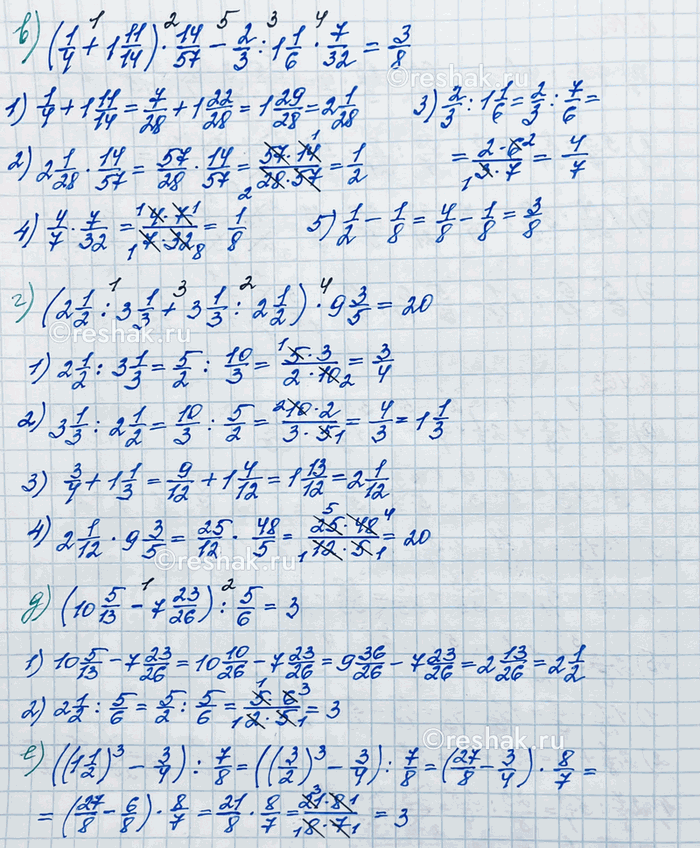 в) (1/4 + 1 11/14) · 14/57 - 2/3 : 1 1/6 · 7/32 = 3/8
1) 1/4 + 1 11/14 = 7/28 + 1 22/28 = 1 29/28 = 2 1/28
3) 2/3 : 1 1/6 = 2/3 : 7/6 =
2) 2 1/28 · 14/57 = 57/28 · 14/57 = 57·14/28·57 = 1/2
= 2·6/3·7 = 4/7
4) 4/7 · 7/32 = 4·7/7·32 = 1/8
5) 1/2 - 1/8 = 4/8 - 1/8 = 3/8
г) (2 1/2 : 3 1/3 + 3 1/3 : 2 1/2) · 9 3/5 = 20
© reshak.ru
1) 2 1/2 : 3 1/3 = 5/2 : 10/3 = 5·3/2·10 = 3/4
2) 3 1/3 : 2 1/2 = 10/3 : 5/2 = 10·2/3·5 = 4/3 = 1 1/3
3) 3/4 + 1 1/3 = 9/12 + 1 4/12 = 1 13/12 = 2 1/12
4) 2 1/12 · 9 3/5 = 25/12 · 48/5 = 25·48/12·5 = 20
© reshak.ru
д) (10 5/13 - 7 23/26) : 5/6 = 3
1) 10 5/13 - 7 23/26 = 10 10/26 - 7 23/26 = 9 36/26 - 7 23/26 = 2 13/26 = 2 1/2
2) 2 1/2 : 5/6 = 5/2 : 5/6 = 5·6/2·5 = 3
© reshak.ru
е) ((1 1/2)³ - 3/4) : 7/8 = ((3/2)³ - 3/4) : 7/8 = (27/8 - 3/4) · 8/7 =
= (27/8 - 6/8) · 8/7 = 21/8 · 8/7 = 21·8/8·7 = 3